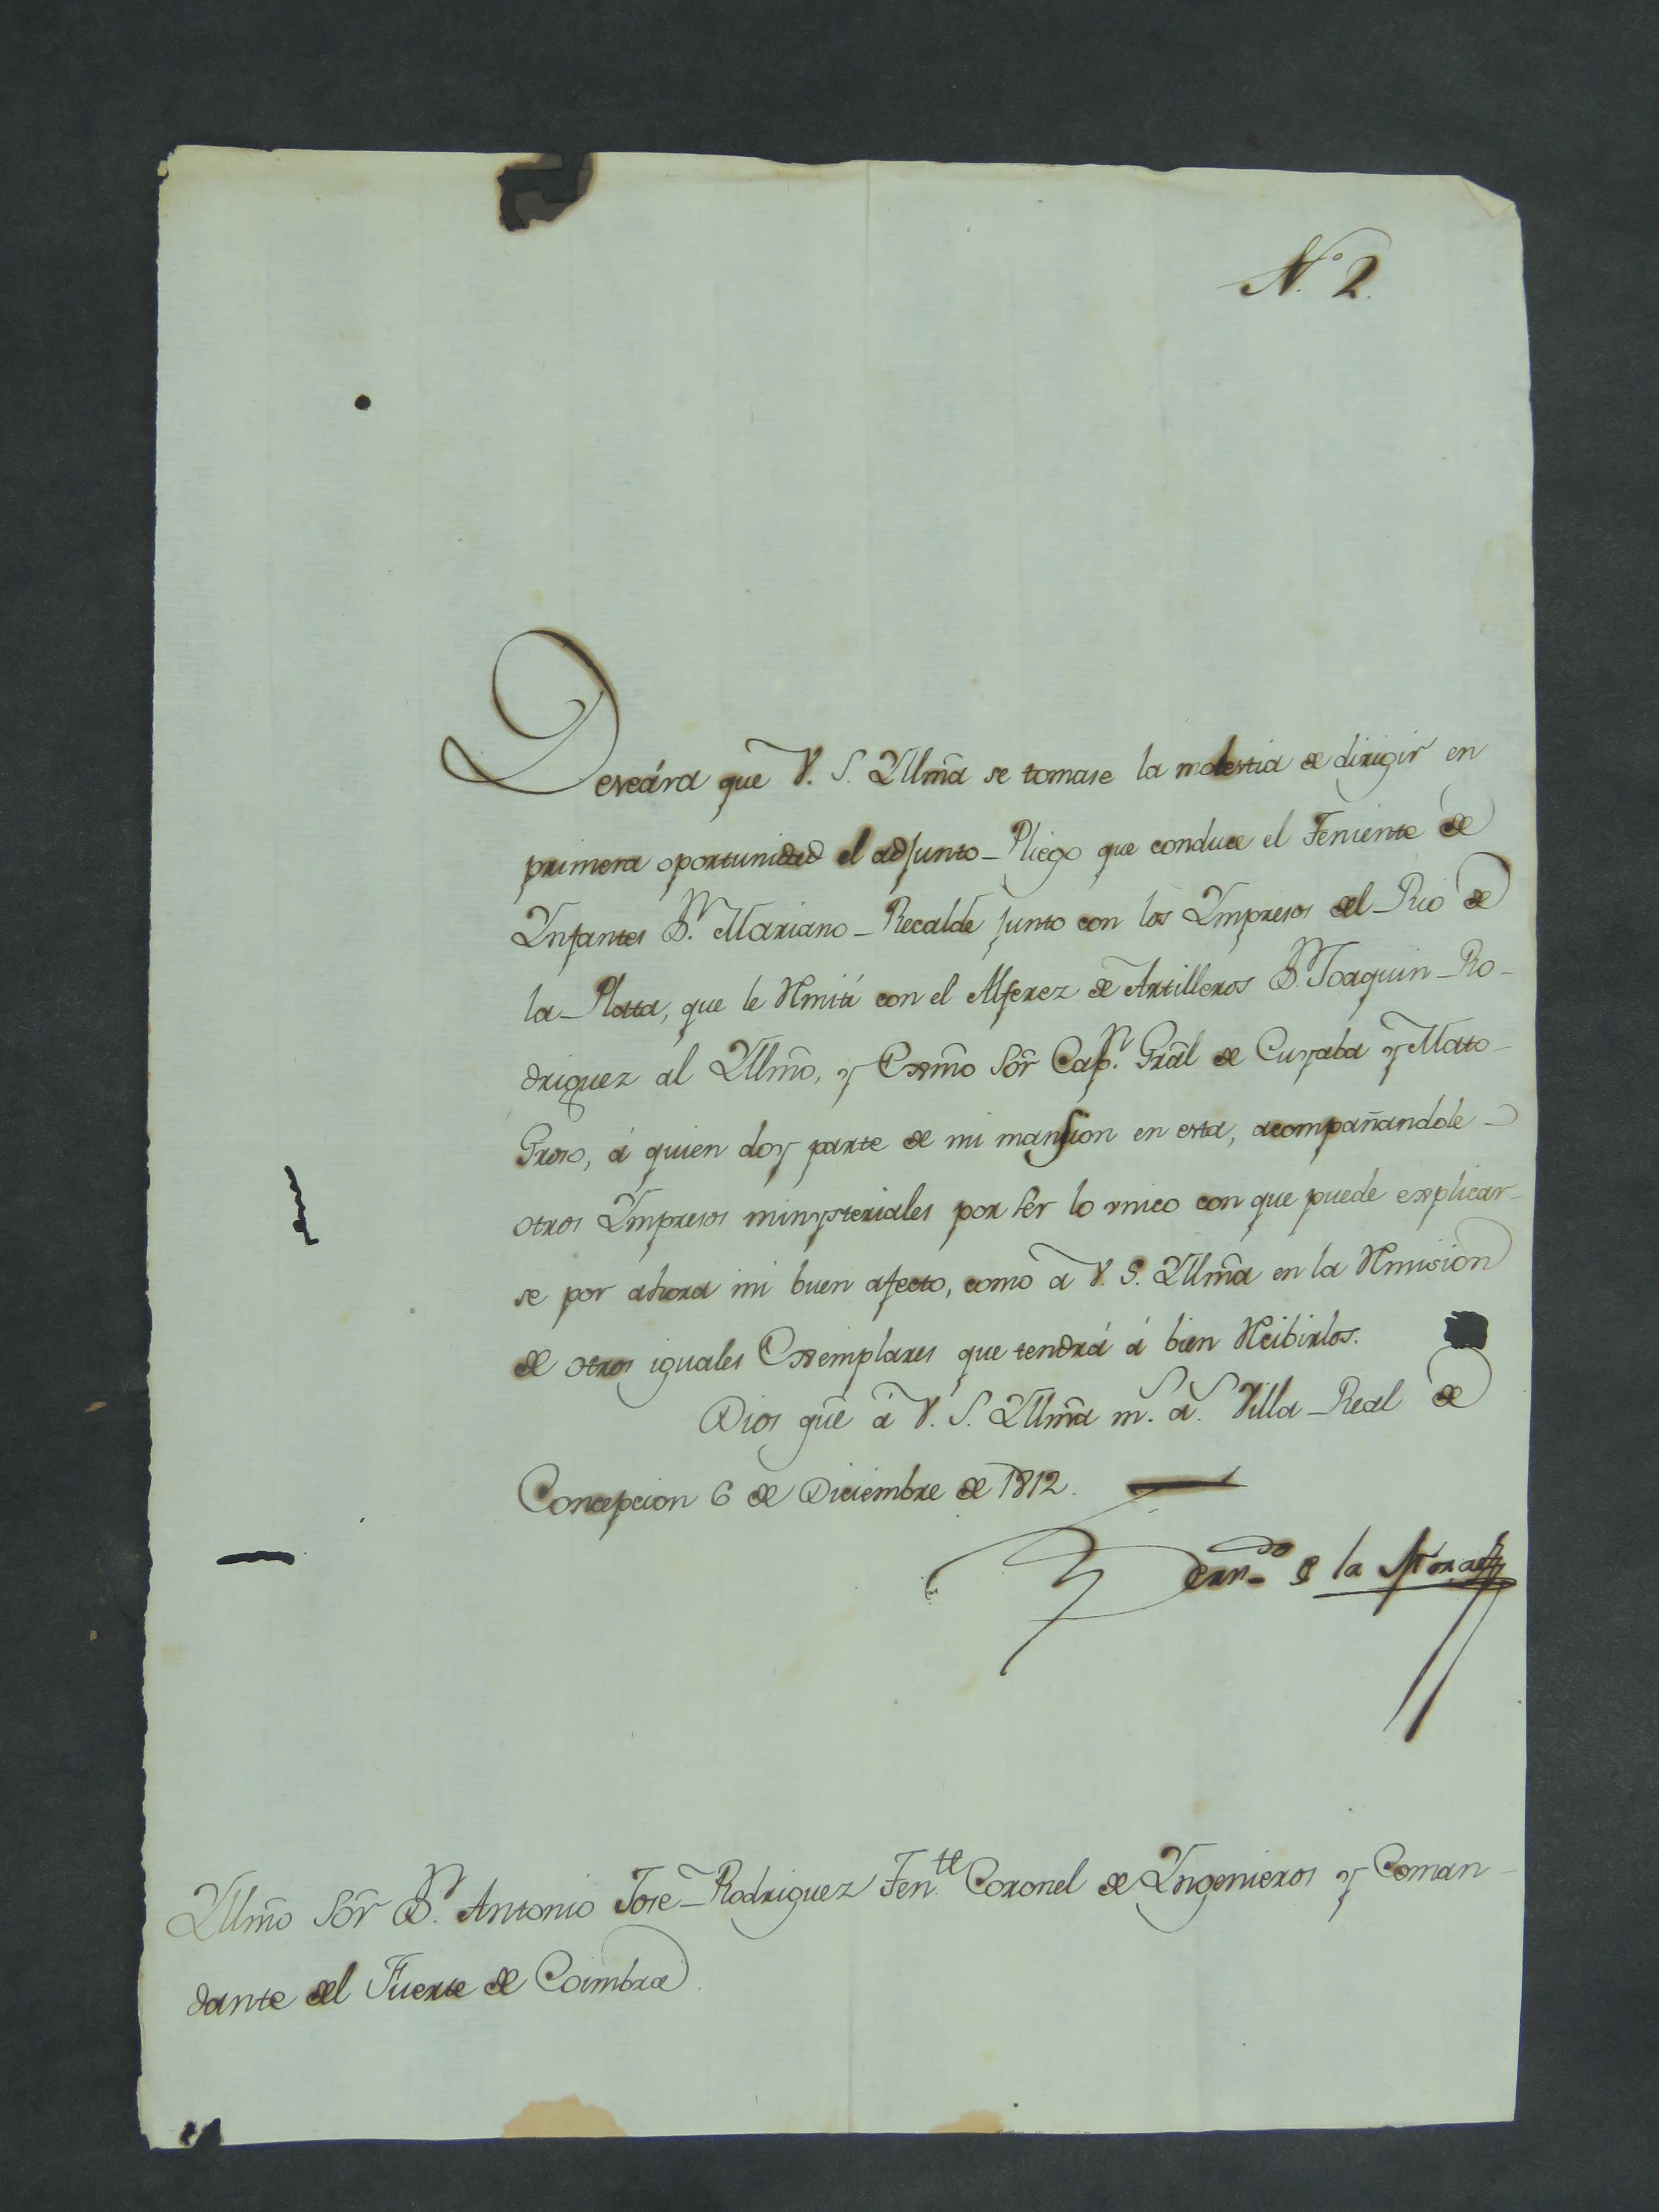 N.º 2.
Deseára que V. S. Yllma se tomase la molestia de dirigir en
primera oportunidad el adjunto Pliego que conduce el Teniente de
Ynfantes Dn. Mariano Recalde junto con los Ympresos del Rio de
la Plata, que le Rmití con el Alferez de Artilleros Dn. Joaquin Ro-
driguez al Yllmo, y Exmo Sor Capn. Gral de Cuyaba y Mato-
Groso, á quien doy parte de mi mansion en esta, acompañandole
otros Ympresos minysteriales por ser lo vnico con que puede explicar-
se por ahora mi buen afecto, como a V. S. Yllma en la Rmision
de otros iguales Exemplares que tendrá á bien Rcibirlos.
Dios gue a V. S. Yllma ms. as. Villa Real de
Concepcion 6 de Diciembre de 1812.
Ferndo de la Mora
Yllmo Sor Dn. Antonio José Rodriguez Tentte. Coronel de Yngenieros y Coman-
dante del Fuerte de Coimbra